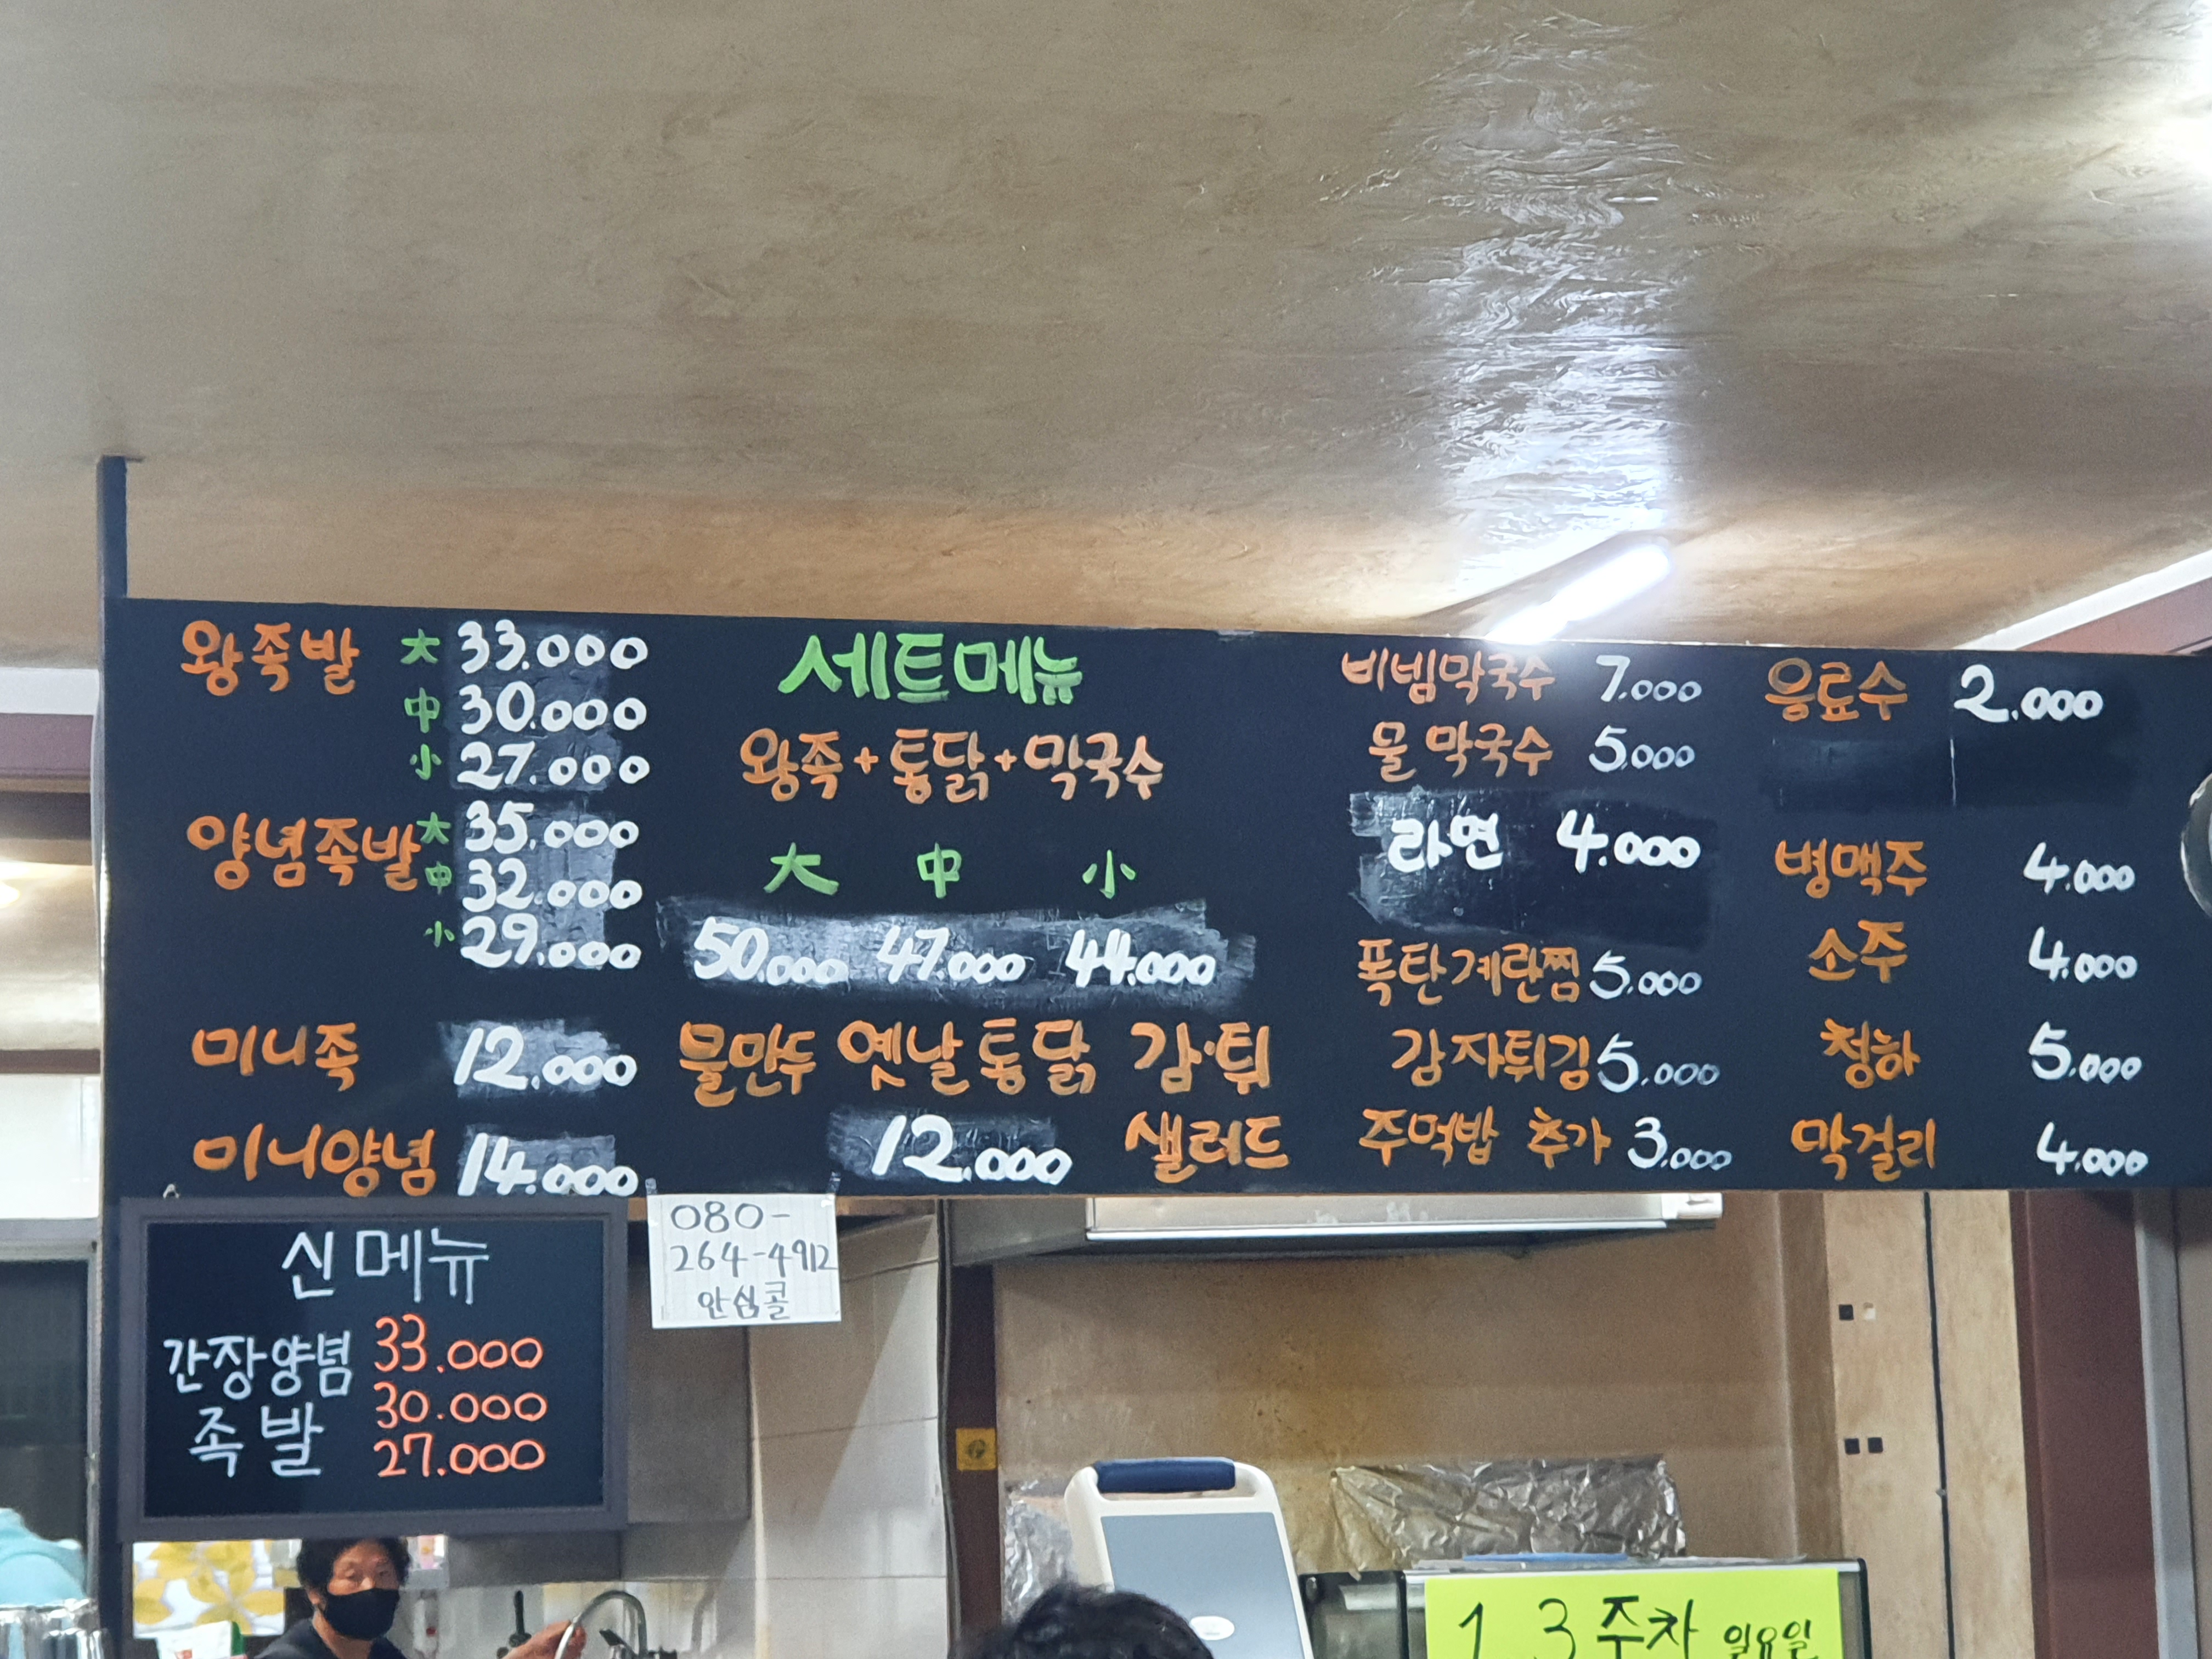 왕족발 大 33.000
中 30.000
小 27.000
양념족발 大 35.000
中 32.000
小 29.000
미니족 12.000
미니양념 14.000
세트메뉴
왕족+통닭+막국수
大 中 小
50.000 47.000 44.000
물만두 옛날통닭 감·튀
12.000 샐러드
비빔막국수 7.000
물막국수 5.000
라면 4.000
폭탄계란찜 5.000
감자튀김 5.000
주먹밥 추가 3.000
음료수 2.000
병맥주 4.000
소주 4.000
청하 5.000
막걸리 4.000
신메뉴
간장양념 33.000
30.000
족발 27.000
080-
264-4912
안심콜
1 3주차 일요일